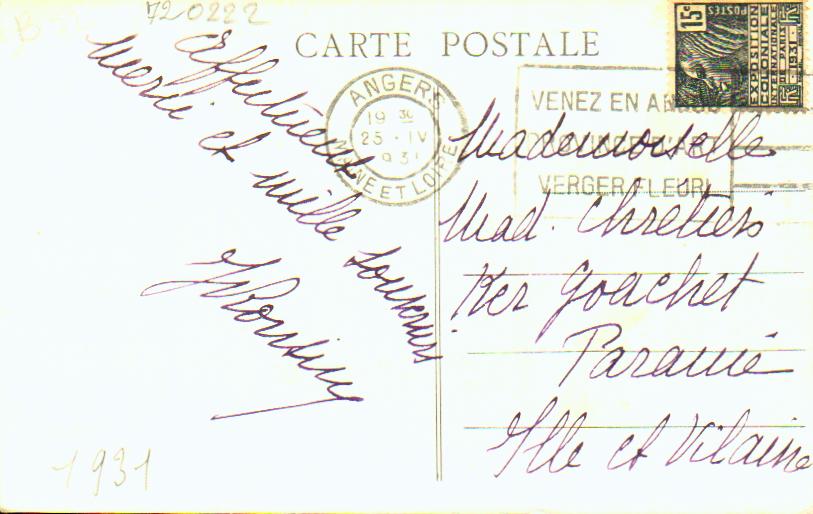 720222
CARTE POSTALE
ANGERS
19 30
25 - IV
31
MAINE ET LOIRE
VENEZ EN ANJOU
VERGER FLEURI
POSTES
15c
EXPOSITION
COLONIALE
INTERNATIONALE
DE PARIS
1931
R F
Affectueux
merci et mille
souvenirs
Mademoiselle
Mad. Chrétien
Ker Goachet
Paramé
Ille et Vilaine
1931